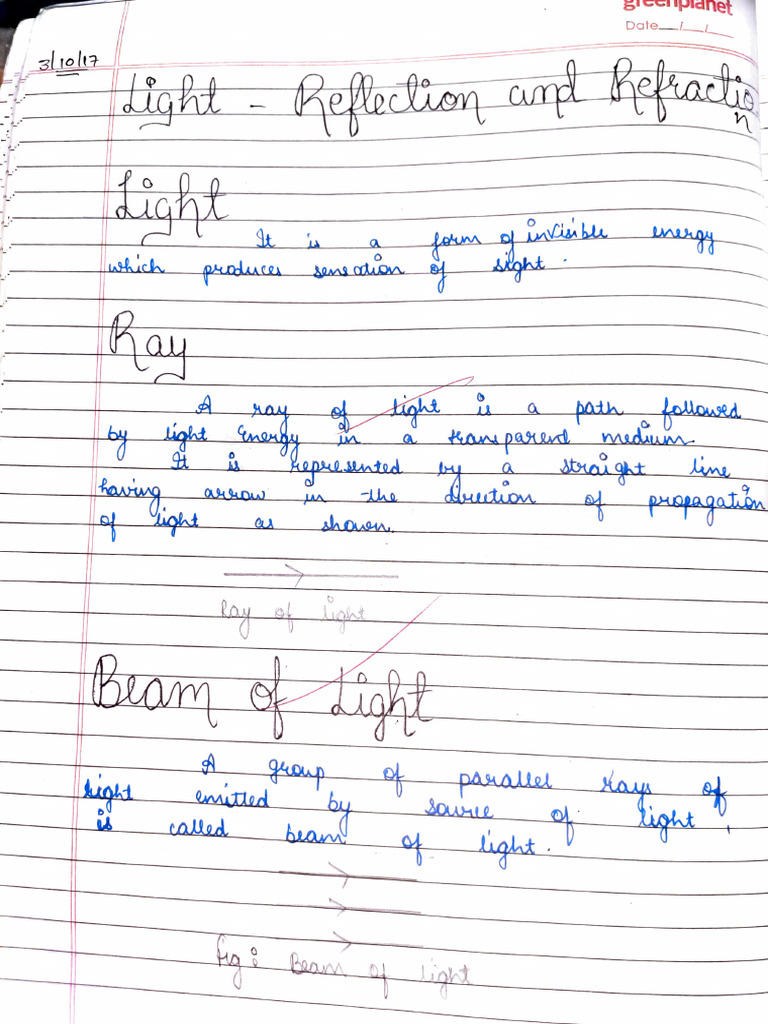 greenplanet
Date__/__/__
3/10/17
Light - Reflection and Refractio
n
Light
It is a form of invisible energy
which produces sensation of sight.
Ray
A ray of light is a path followed
by light energy in a transparent medium.
It is represented by a straight line
having arrow in the direction of propagation
of light as shown.
Ray of light
Beam of Light
A group of parallel rays of
light emitted by source of light,
is called beam of light.
fig: Beam of light